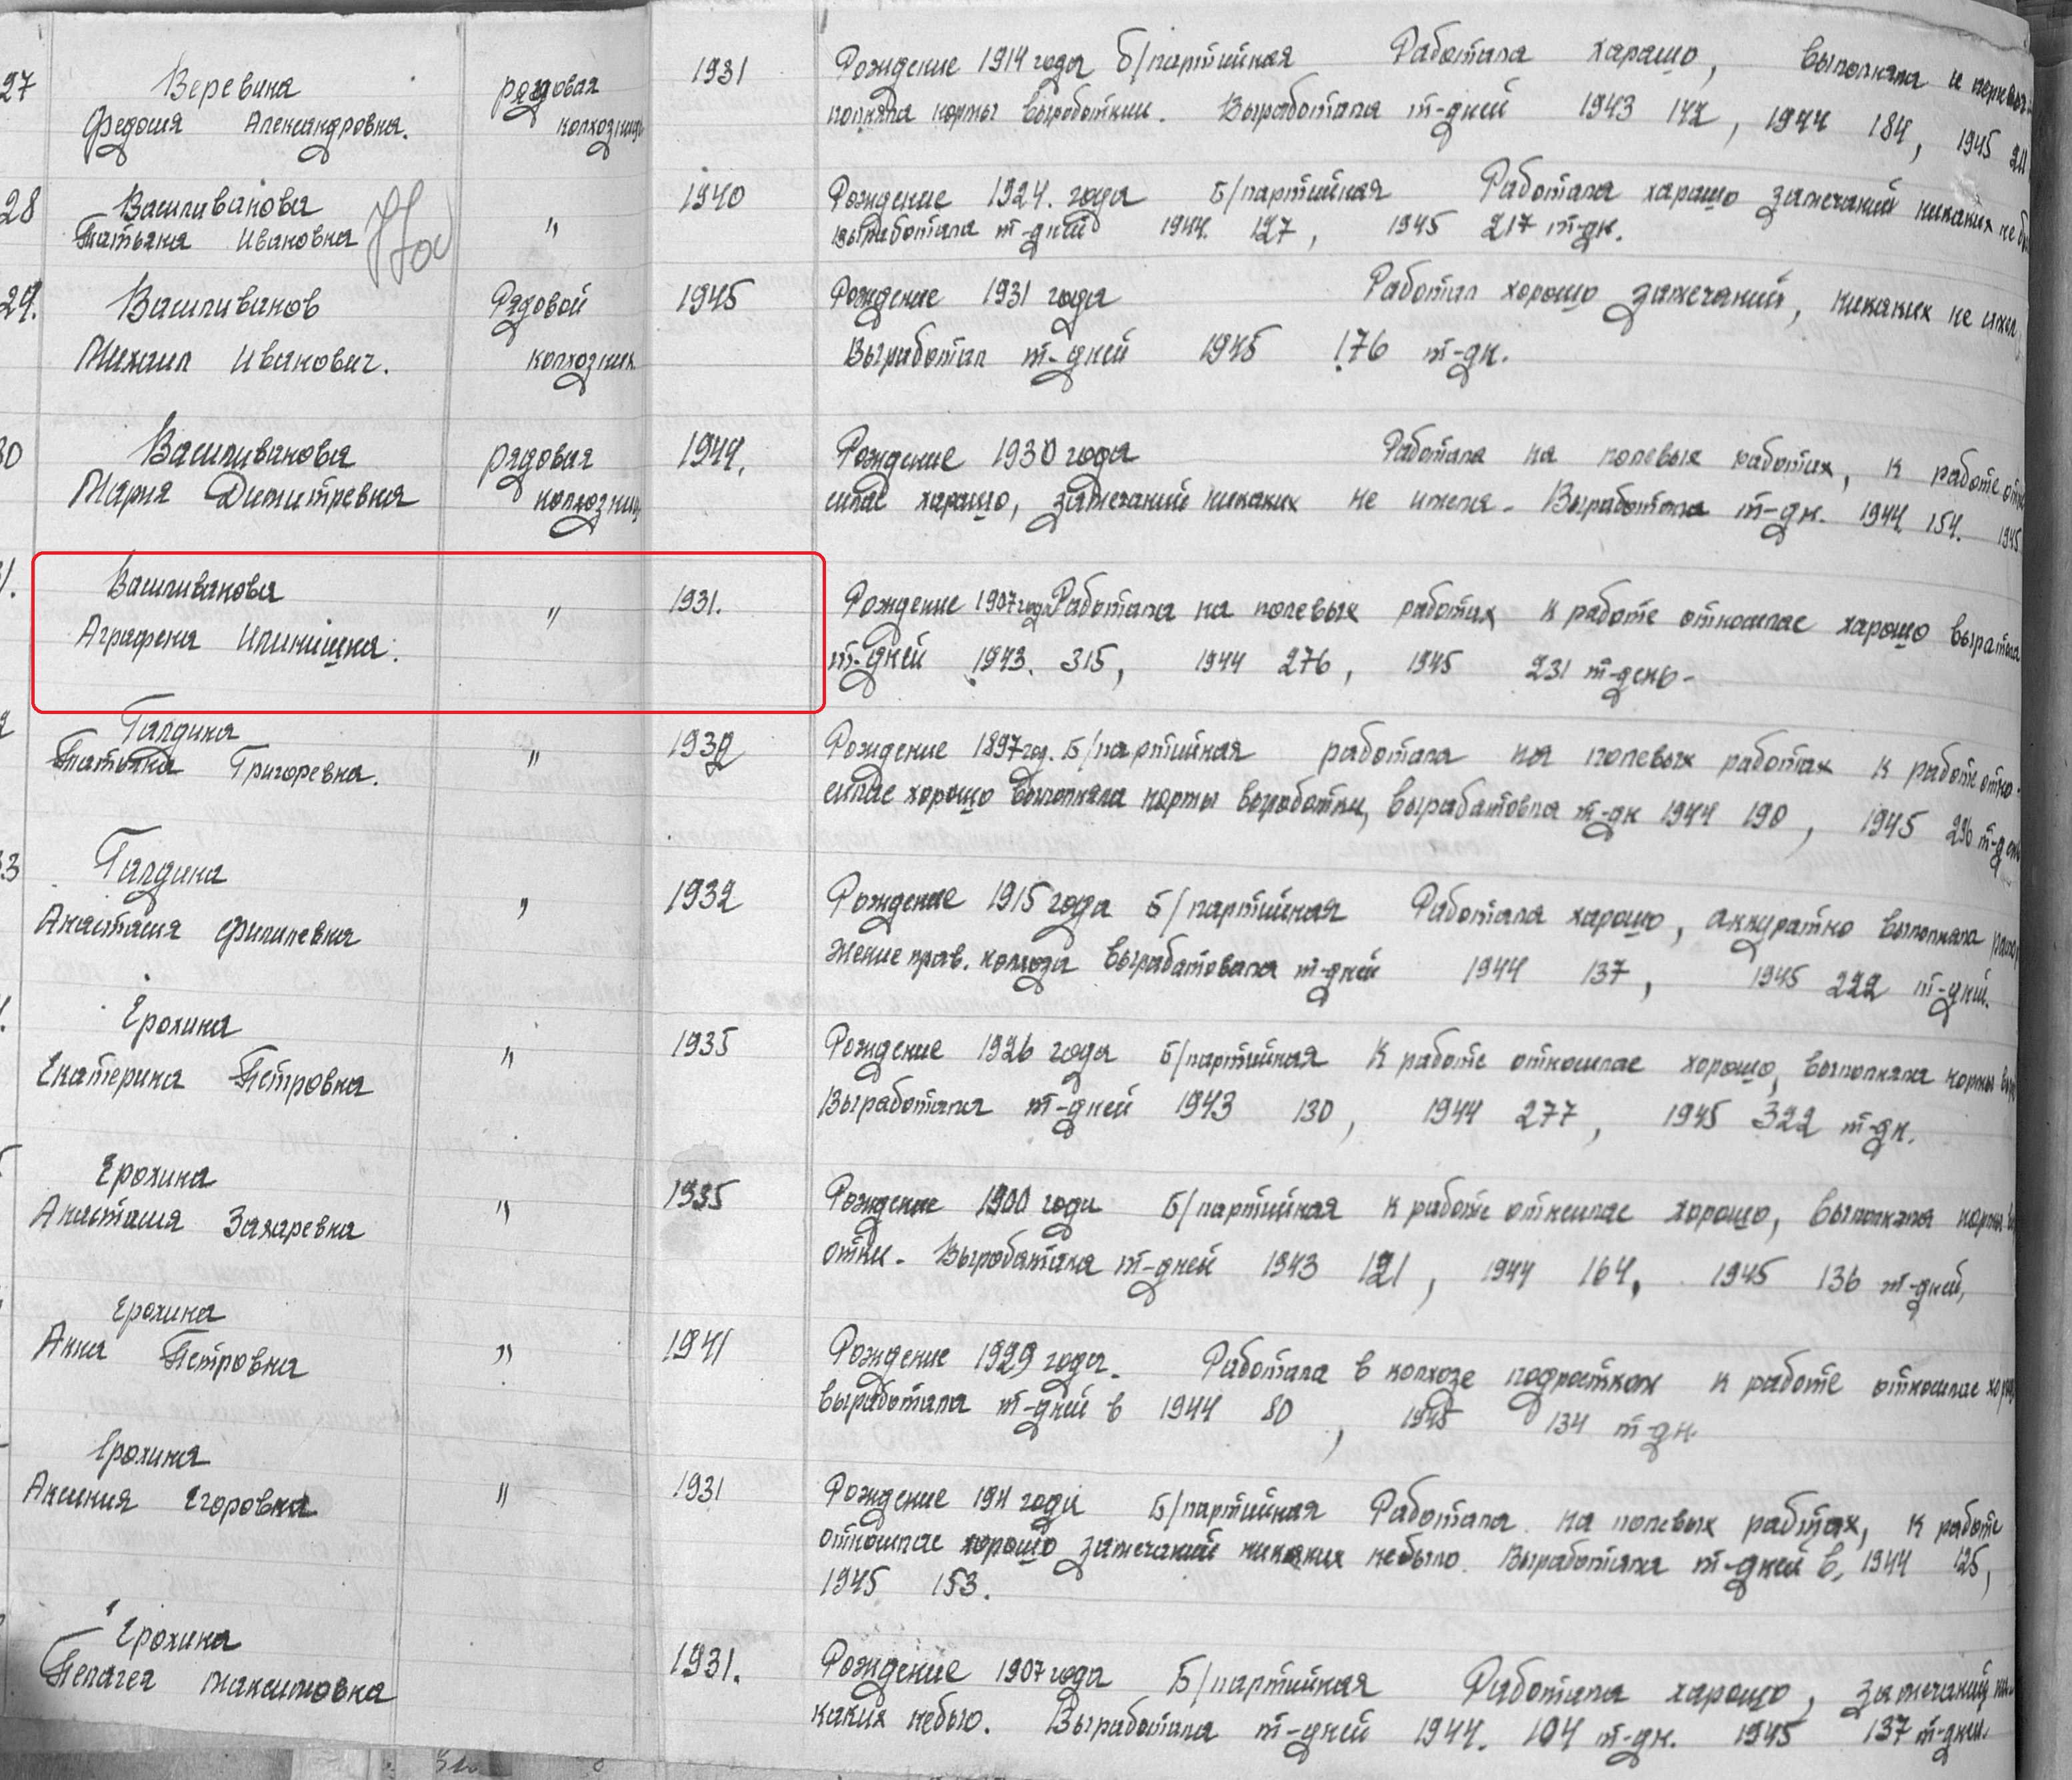 27 Веревина рядовая 1931 Рождение 1914 года Б/партийная Работала харашо, выполняла и перевы-
Федосия Александровна. колхозниц полняла нормы выроботкии. Выработала т-дней 1943 142, 1944 184, 1945 211
28 Василиванова 1940 Рождение 1924. года Б/партийная Работала харашо замечаний никаких не бы
Татьяна Ивановна " выработала т-дней 1944. 127, 1945 217 т-дн.
29. Василиванов Рядовой 1945 Рождение 1931 года Работал хорошо замечаний, никаких не имел
Михаил Иванович. колхозник Выработал т-дней 1945 176 т-дн.
30 Василиванова рядовая 1944. Рождение 1930 года Работала на полевых работах, к работе отно
Мария Димитревна колхозниц силас харашо, замечаний никаких не имела - Выработала т-дн. 1944 154. 1945
31. Василиванова " 1931. Рождение 1907 года Работала на полевых работах к работе относилас харошо
Аграфена Илинишна. т-дней 1943. 315, 1944 276, 1945 231 т-день-
Галдина 1932 Рождение 1897 год. Б/партийная работала на полевых работах к работе отно-
Татьяна Григоревна. " силас хорошо выполняла нормы выработки, вырабатовла т-дн 1944 190, 1945 236 т-ден
33 Галдина 1932 Рождение 1915 года Б/партийная Работала харашо, аккуратно выполняла
Анастасия Филипевна " жение прав. колхоза вырабатовала т-дней 1944 137, 1945 222 т-дней.
Ерохина 1935 Рождение 1926 года Б/партийная К работе относилас хорошо, выполняла нормы выр
Екатерина Петровна " Выработала т-дней 1943 130, 1944 277, 1945 322 т-дн.
Ерохина 1935 Рождение 1900 года Б/партийная К работе отнеилас хорошо, выполняла нормы
Анастасия Захаревна " отки - Выробатала т-дней 1943 121, 1944 164, 1945 136 т-дней,
Ерохина 1941 Рождение 1929 года. Работала в колхозе подростком к работе относилас хор
Анна Петровна " выработала т-дней в 1944 80, 1945 134 т-дн.
Ерохина 1931 Рождение 1911 года Б/партийная Работала на полевых работах, к работе
Аксиния Егоровна " относилас хорошо замечаний никаких небыло. Выработала т-дней в, 1944 125,
1945 153.
Ерохина 1931. Рождение 1907 года Б/партийная Работала харошо, замечаний ни-
Пелагея Максимовна каких небыло. Выработала т-дней 1944. 104 т-дн. 1945 137 т-дней.